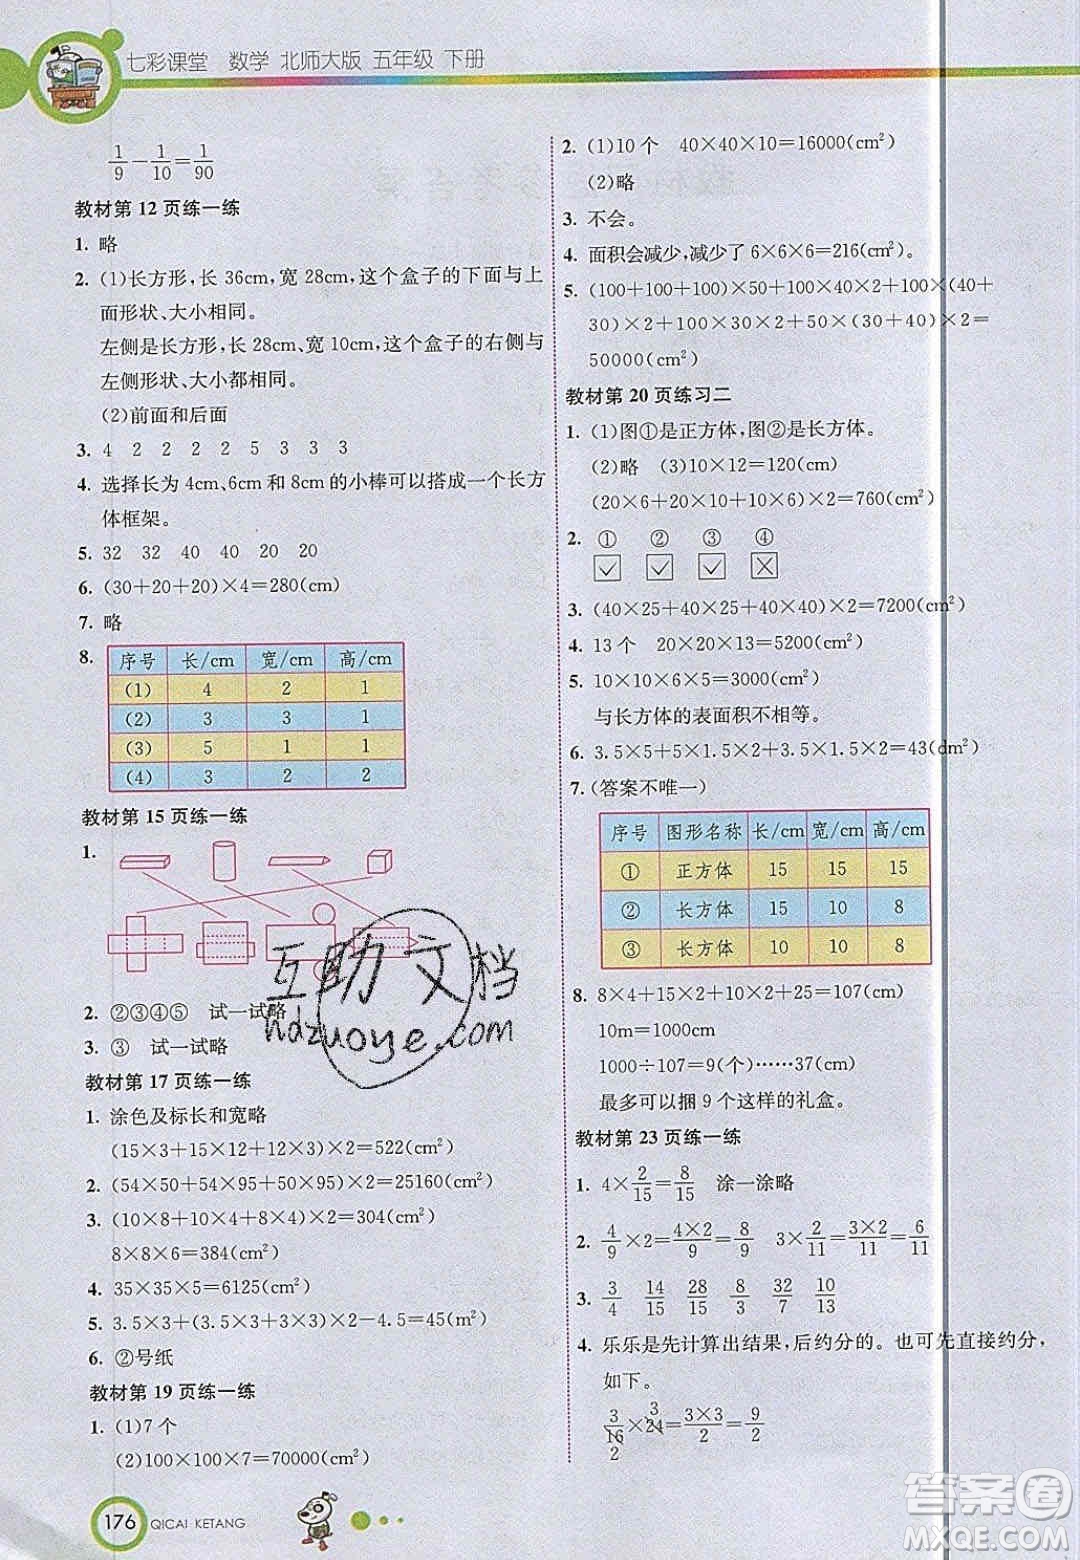 七彩课堂 数学 北师大版 五年级 下册
1/9-1/10=1/90
教材第12页练一练
1. 略
2. (1)长方形,长 36cm,宽 28cm,这个盒子的下面与上
面形状、大小相同。
左侧是长方形,长 28cm、宽 10cm,这个盒子的右侧与
左侧形状、大小都相同。
(2)前面和后面
3. 4 2 2 2 2 5 3 3 3
4. 选择长为 4cm、6cm 和 8cm 的小棒可以搭成一个长方
体框架。
5. 32 32 40 40 20 20
6. (30+20+20)×4=280(cm)
7. 略
8.
序号 长/cm 宽/cm 高/cm
(1) 4 2 1
(2) 3 3 1
(3) 5 1 1
(4) 3 2 2
教材第15页练一练
1.
2. ②③④⑤ 试一试略
3. ③ 试一试略
教材第17页练一练
1. 涂色及标长和宽略
(15×3+15×12+12×3)×2=522(cm²)
2. (54×50+54×95+50×95)×2=25160(cm²)
3. (10×8+10×4+8×4)×2=304(cm²)
8×8×6=384(cm²)
4. 35×35×5=6125(cm²)
5. 3.5×3+(3.5×3+3×3)×2-4.5=45(m²)
6. ②号纸
教材第19页练一练
1. (1)7个
(2)100×100×7=70000(cm²)
176 QICAI KETANG
2. (1)10个 40×40×10=16000(cm²)
(2)略
3. 不会。
4. 面积会减少,减少了 6×6×6=216(cm²)。
5. (100+100+100)×50+100×40×2+100×(40+
30)×2+100×30×2+50×(30+40)×2=
50000(cm²)
教材第20页练习二
1. (1)图①是正方体,图②是长方体。
(2)略 (3)10×12=120(cm)
(20×6+20×10+10×6)×2=760(cm²)
2. ① ② ③ ④
✓ ✓ ✓ ×
3. (40×25+40×25+40×40)×2=7200(cm²)
4. 13个 20×20×13=5200(cm²)
5. 10×10×6×5=3000(cm²)
与长方体的表面积不相等。
6. 3.5×5+5×1.5×2+3.5×1.5×2=43(dm²)
7. (答案不唯一)
序号 图形名称 长/cm 宽/cm 高/cm
① 正方体 15 15 15
② 长方体 15 10 8
③ 长方体 10 10 8
8. 8×4+15×2+10×2+25=107(cm)
10m=1000cm
1000÷107=9(个)……37(cm)
最多可以捆 9 个这样的礼盒。
教材第23页练一练
1. 4×2/15=8/15 涂一涂略
2. 4/9×2=4×2/9=8/9 3×2/11=3×2/11=6/11
3. 3/4 14/15 28/15 8/3 20/7 10/13
4. 乐乐是先计算出结果,后约分的。也可先直接约分,
如下。
3/16×24=3×3/2=9/2
2 3
互助文档
hdzuoye.com
答案圈
MXQE.COM